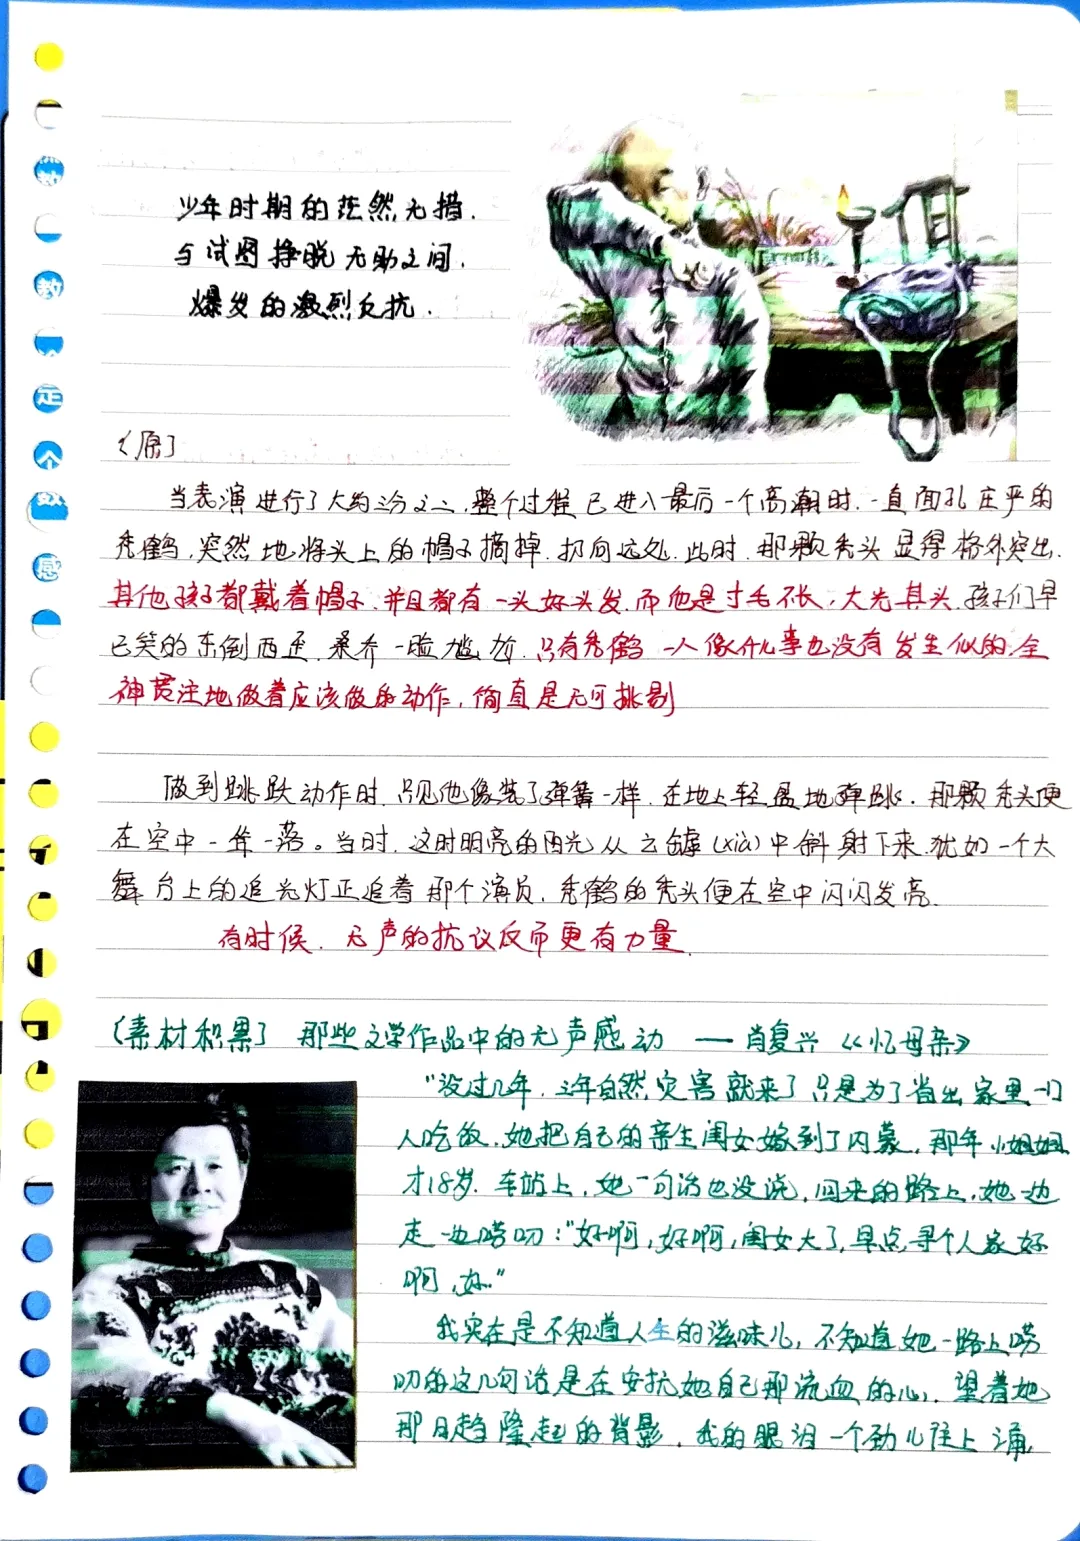 少年时期的茫然无措.
与试图挣脱无助之间.
爆发的激烈反抗.
〔原〕
当表演进行了大约三分之二,整个过程已进入最后一个高潮时.一直面孔庄严的
秃鹤,突然地将头上的帽子摘掉.扔向远处.此时.那颗秃头显得格外突出.
其他孩子都戴着帽子.并且都有一头好头发.而他是寸毛不长,大光其头.孩子们早
已笑的东倒西歪.桑乔一脸尴尬.只有秃鹤一人像什么事也没有发生似的.全
神贯注地做着应该做的动作,简直是无可挑剔
做到跳跃动作时.只见他像装了弹簧一样.在地上轻盈地弹跳.那颗秃头便
在空中一耸一落。当时.这时明亮的阳光从云罅(xià)中斜射下来.犹如一个大
舞台上的追光灯正追着那个演员.秃鹤的秃头便在空中闪闪发亮.
有时候.无声的抗议反而更有力量.
〔素材积累〕那些文学作品中的无声感动 ——肖复兴《忆母亲》
"没过几年.三年自然灾害就来了只是为了省出家里一口
人吃饭.她把自己的亲生闺女嫁到了内蒙.那年小姐姐
才18岁.车站上,她一句话也没说,回来的路上,她一边
走一边唠叨:"好啊,好啊,闺女大了,早点寻个人家好
啊,好."
我实在是不知道人生的滋味儿,不知道她一路上唠
叨的这几句话是在安抚她自己那流血的心.望着她
那日趋隆起的背影.我的眼泪一个劲儿往上涌
教
定
个
数
感